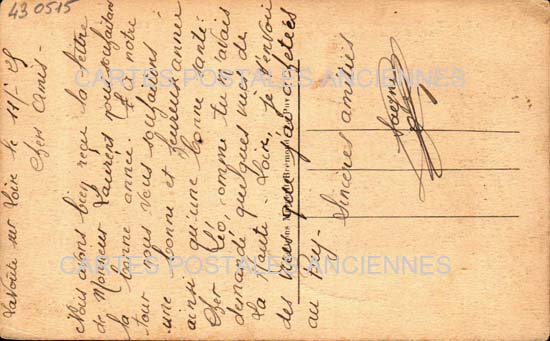 43 0515
Lavoûte sur Loire le 11/1-25
Chers Amis -
Nous avons bien reçu la lettre
de Monsieur Laurent nous souhaitant
la bonne année. À notre
tour nous vous souhaitons
une bonne et heureuse année
ainsi qu'une bonne santé.
Cher Léo, comme tu m'avais
demandé quelques vues de
la Haute-Loire, je t'envoie
des vues que j'ai achetées
au Puy - Sincères amitiés
CARTES POSTALES ANCIENNES
CARTES POSTALES ANCIENNES